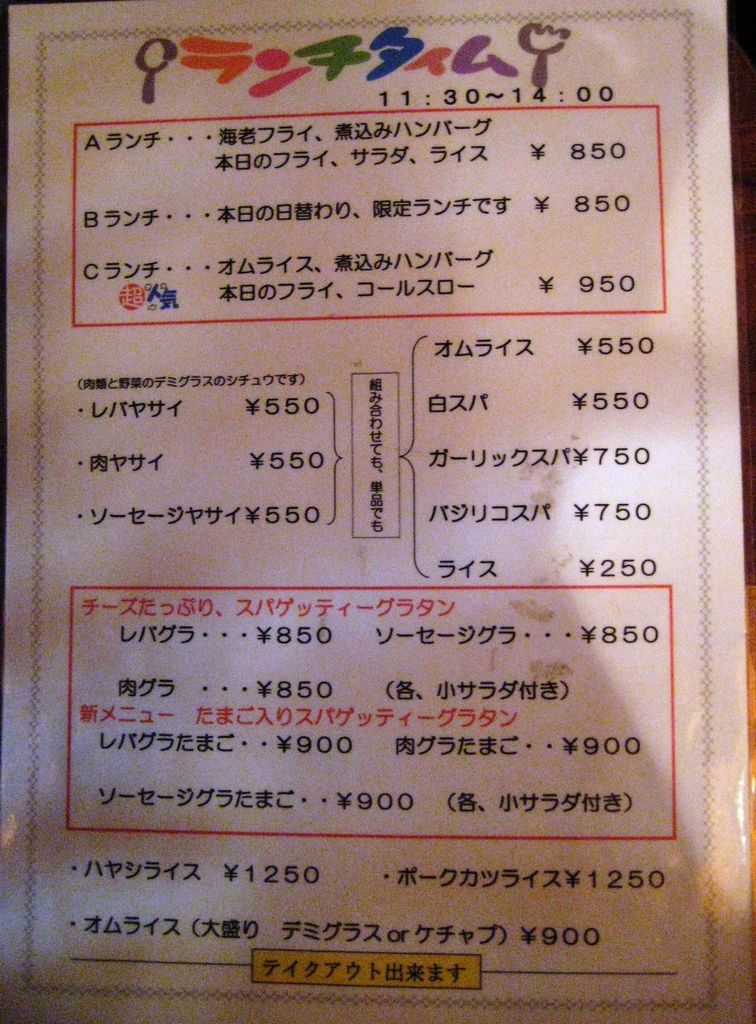 ランチタイム
11:30～14:00
Aランチ・・・海老フライ、煮込みハンバーグ
本日のフライ、サラダ、ライス ￥ 850
Bランチ・・・本日の日替わり、限定ランチです ￥ 850
Cランチ・・・オムライス、煮込みハンバーグ
超人気 本日のフライ、コールスロー ￥ 950
(肉類と野菜のデミグラスのシチュウです)
・レバヤサイ ￥550
・肉ヤサイ ￥550
・ソーセージヤサイ￥550
組み合わせても、単品でも
オムライス ￥550
白スパ ￥550
ガーリックスパ￥750
バジリコスパ ￥750
ライス ￥250
チーズたっぷり、スパゲッティーグラタン
レバグラ・・・￥850 ソーセージグラ・・・￥850
肉グラ ・・・￥850 (各、小サラダ付き)
新メニュー たまご入りスパゲッティーグラタン
レバグラたまご・・￥900 肉グラたまご・・￥900
ソーセージグラたまご・・￥900 (各、小サラダ付き)
・ハヤシライス ￥1250 ・ポークカツライス￥1250
・オムライス(大盛り デミグラスorケチャプ)￥900
テイクアウト出来ます